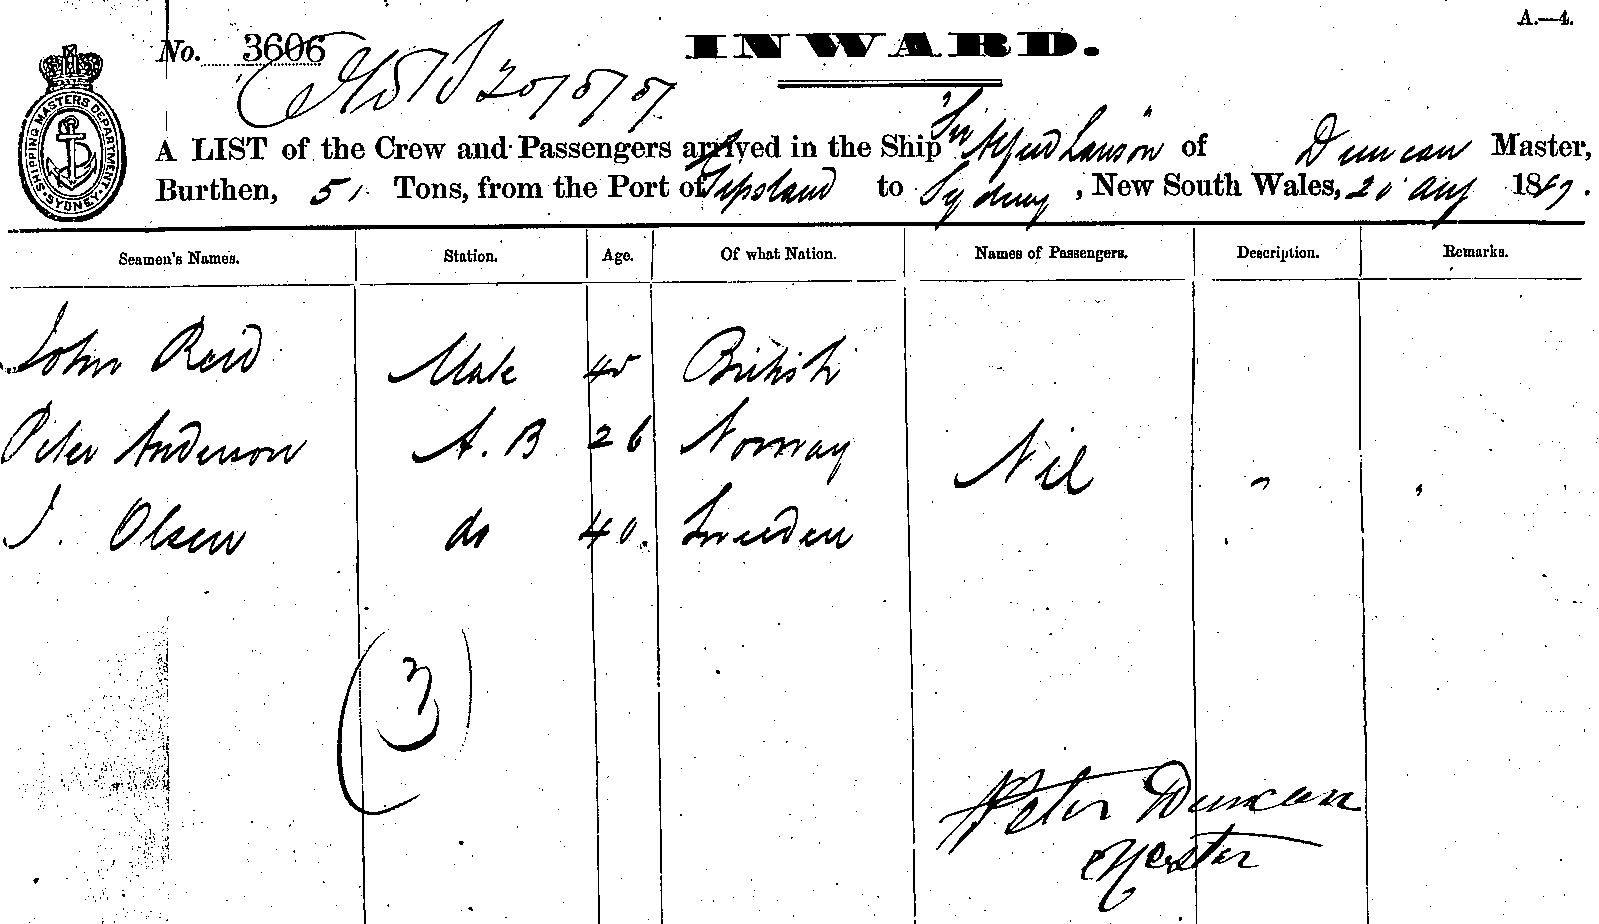 A.—4.
No. 3606
INWARD.
SHIPPING MASTERS DEPARTMENT SYDNEY
A LIST of the Crew and Passengers arrived in the Ship "Sir Alfred" of Duncan Master,
Burthen, 51 Tons, from the Port of Gipsland to Sydney, New South Wales, 20 Aug 1867.
Seamen's Names. Station. Age. Of what Nation. Names of Passengers. Description. Remarks.
John Reid Mate 45 British
Peter Anderson A.B 26 Norway Nil
J. Olsen do 40. Sweeden
(3)
Peter Duncan
Master